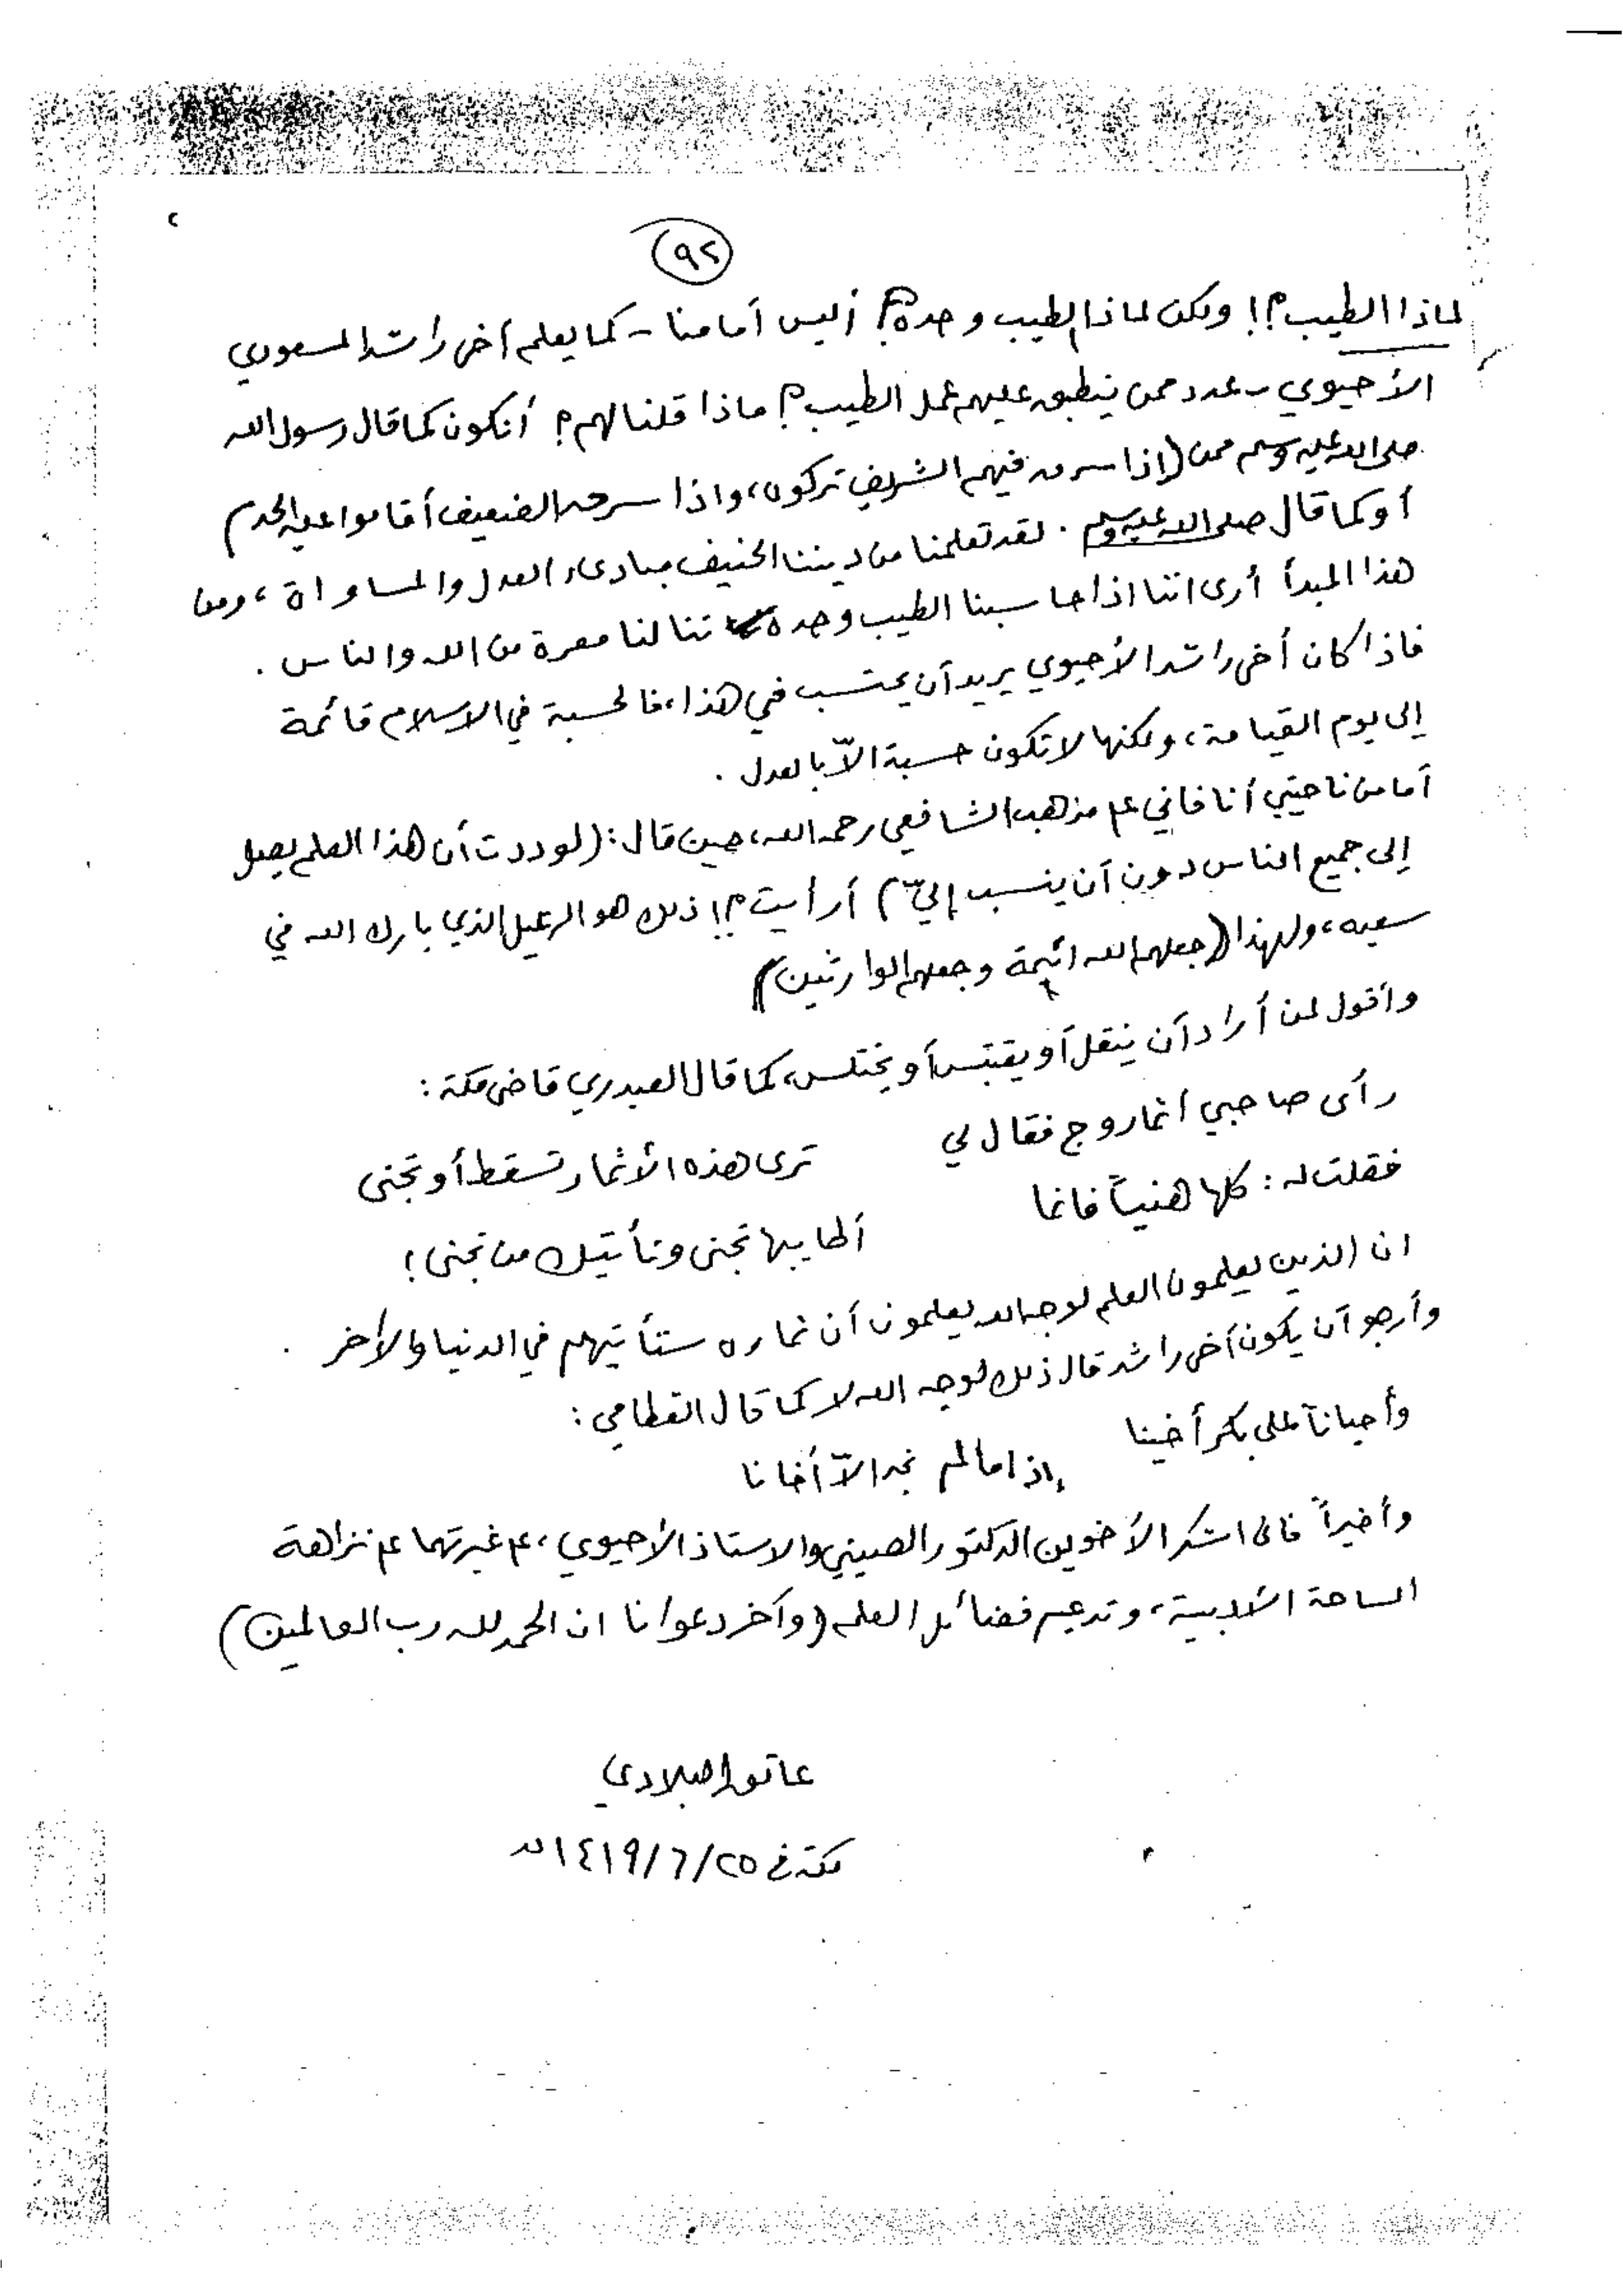 ٩٢
لماذا الطيب؟! ولكن لماذا الطيب وحده؟! أليس أمامنا - كما يعلم أخي راشد المسعودي
الأحيوي - عدد ممن ينطبق عليهم عمل الطيب؟! ماذا قلنا لهم؟ أنكون كما قال رسول الله
صلى الله عليه وسلم ممن (إذا سرق فيهم الشريف تركوه، واذا سرق الضعيف أقاموا عليه الحد)
أو كما قال صلى الله عليه وسلم. لقد تعلمنا من ديننا الحنيف مبادئ العدل والمساواة، ومن
هذا المبدأ أرى اننا اذا حاسبنا الطيب وحده تنالنا معرة من الله والناس.
فاذا كان أخي راشد الأحيوي يريد أن يحتسب في هذا، فالحسبة في الاسلام قائمة
إلى يوم القيامة، ولكنها لا تكون حسبة الاّ بالعدل.
أما من ناحيتي أنا فاني على مذهب الشافعي رحمه الله، حين قال: (لوددت أن هذا العلم يصل
إلى جميع الناس دون أن ينسب إليّ) أرأيت؟! ذلك هو الرعيل الذي بارك الله في
سعيه، ولهذا (جعلهم الله ائمة وجعلهم الوارثين)
وأقول لمن أراد أن ينقل أو يقتبس أو يختلس، كما قال العبدري قاضي مكة:
رأى صاحبي أثمار وج فقال لي
ترى هذه الأثمار تسقط أو تجنى
فقلت له: كلها هنيئاً فانما
أطايبها تجنى وتأتيك من تجنى!
ان الذين يعلمون العلم لوجه الله يعلمون أن ثماره ستأتيهم في الدنيا والأخر.
وأرجو أن يكون أخي راشد قال ذلك لوجه الله لا كما قال القطامي:
وأحياناً على بكر أخينا
إذا ما لم نجد الاّ أخانا
وأخيراً فاني اشكر الأخوين الدكتور الصيني والاستاذ الأحيوي، على غيرتهما على نزاهة
الساحة الأدبية، وتدعيم فضائل العلم (وآخر دعوانا ان الحمد لله رب العالمين)
عاتق البلادي
مكة في ٢٥/٦/١٤١٩هـ